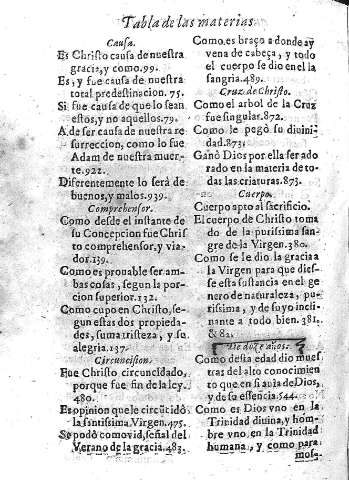 Tabla de las materias
Causa.
Es Christo causa de nuestra
gracia, y como. 99.
Es, y fue causa de nuestra
total predestinacion. 75.
Si fue causa de que lo sean
estos, y no aquellos. 79.
A de ser causa de nuestra re
surreccion, como lo fue
Adam de nuestra muer-
te. 922.
Diferentemente lo será de
buenos, y malos. 939.
Comprehensor.
Como desde el instante de
su Concepcion fue Chris
to comprehensor, y via-
dor. 139.
Como es prouable ser am-
bas cosas, segun la por-
cion superior. 132.
Como cupo en Christo, se-
gun estas dos propieda-
des, suma tristeza, y su
alegria. 137.
Circuncision.
Fue Christo circuncidado,
porque fue fin de la ley.
480.
Es opinion que le circũcidò
la santissima Virgen. 475.
Se podò como vid, señal del
Verano de la gracia. 483.
Como es braço a donde ay
vena de cabeça, y todo
el cuerpo se dio en el la
sangria. 489.
Cruz de Christo.
Como el arbol de la Cruz
fue singular. 872.
Como le pegò su diuini-
dad. 873.
Ganò Dios por ella ser ado
rado en la materia de to-
das las criaturas. 873.
Cuerpo.
Cuerpo apto al sacrificio.
El cuerpo de Christo toma
do de la purissima san-
gre de la Virgen. 380.
Como se le dio la gracia a
la Virgen para que dies-
se esta sustancia en el ge
nero de naturaleza, pu-
rissima, y de suyo incli-
nante a todo bien. 381.
& 82.
De doze años.
Como desta edad dio mues
tras del alto conocimien
to que en si auia de Dios,
y de su essencia. 544.
Como es Dios vno en la
Trinidad diuina, y hom-
bre vno en la Trinidad
humana, y como para
mos-